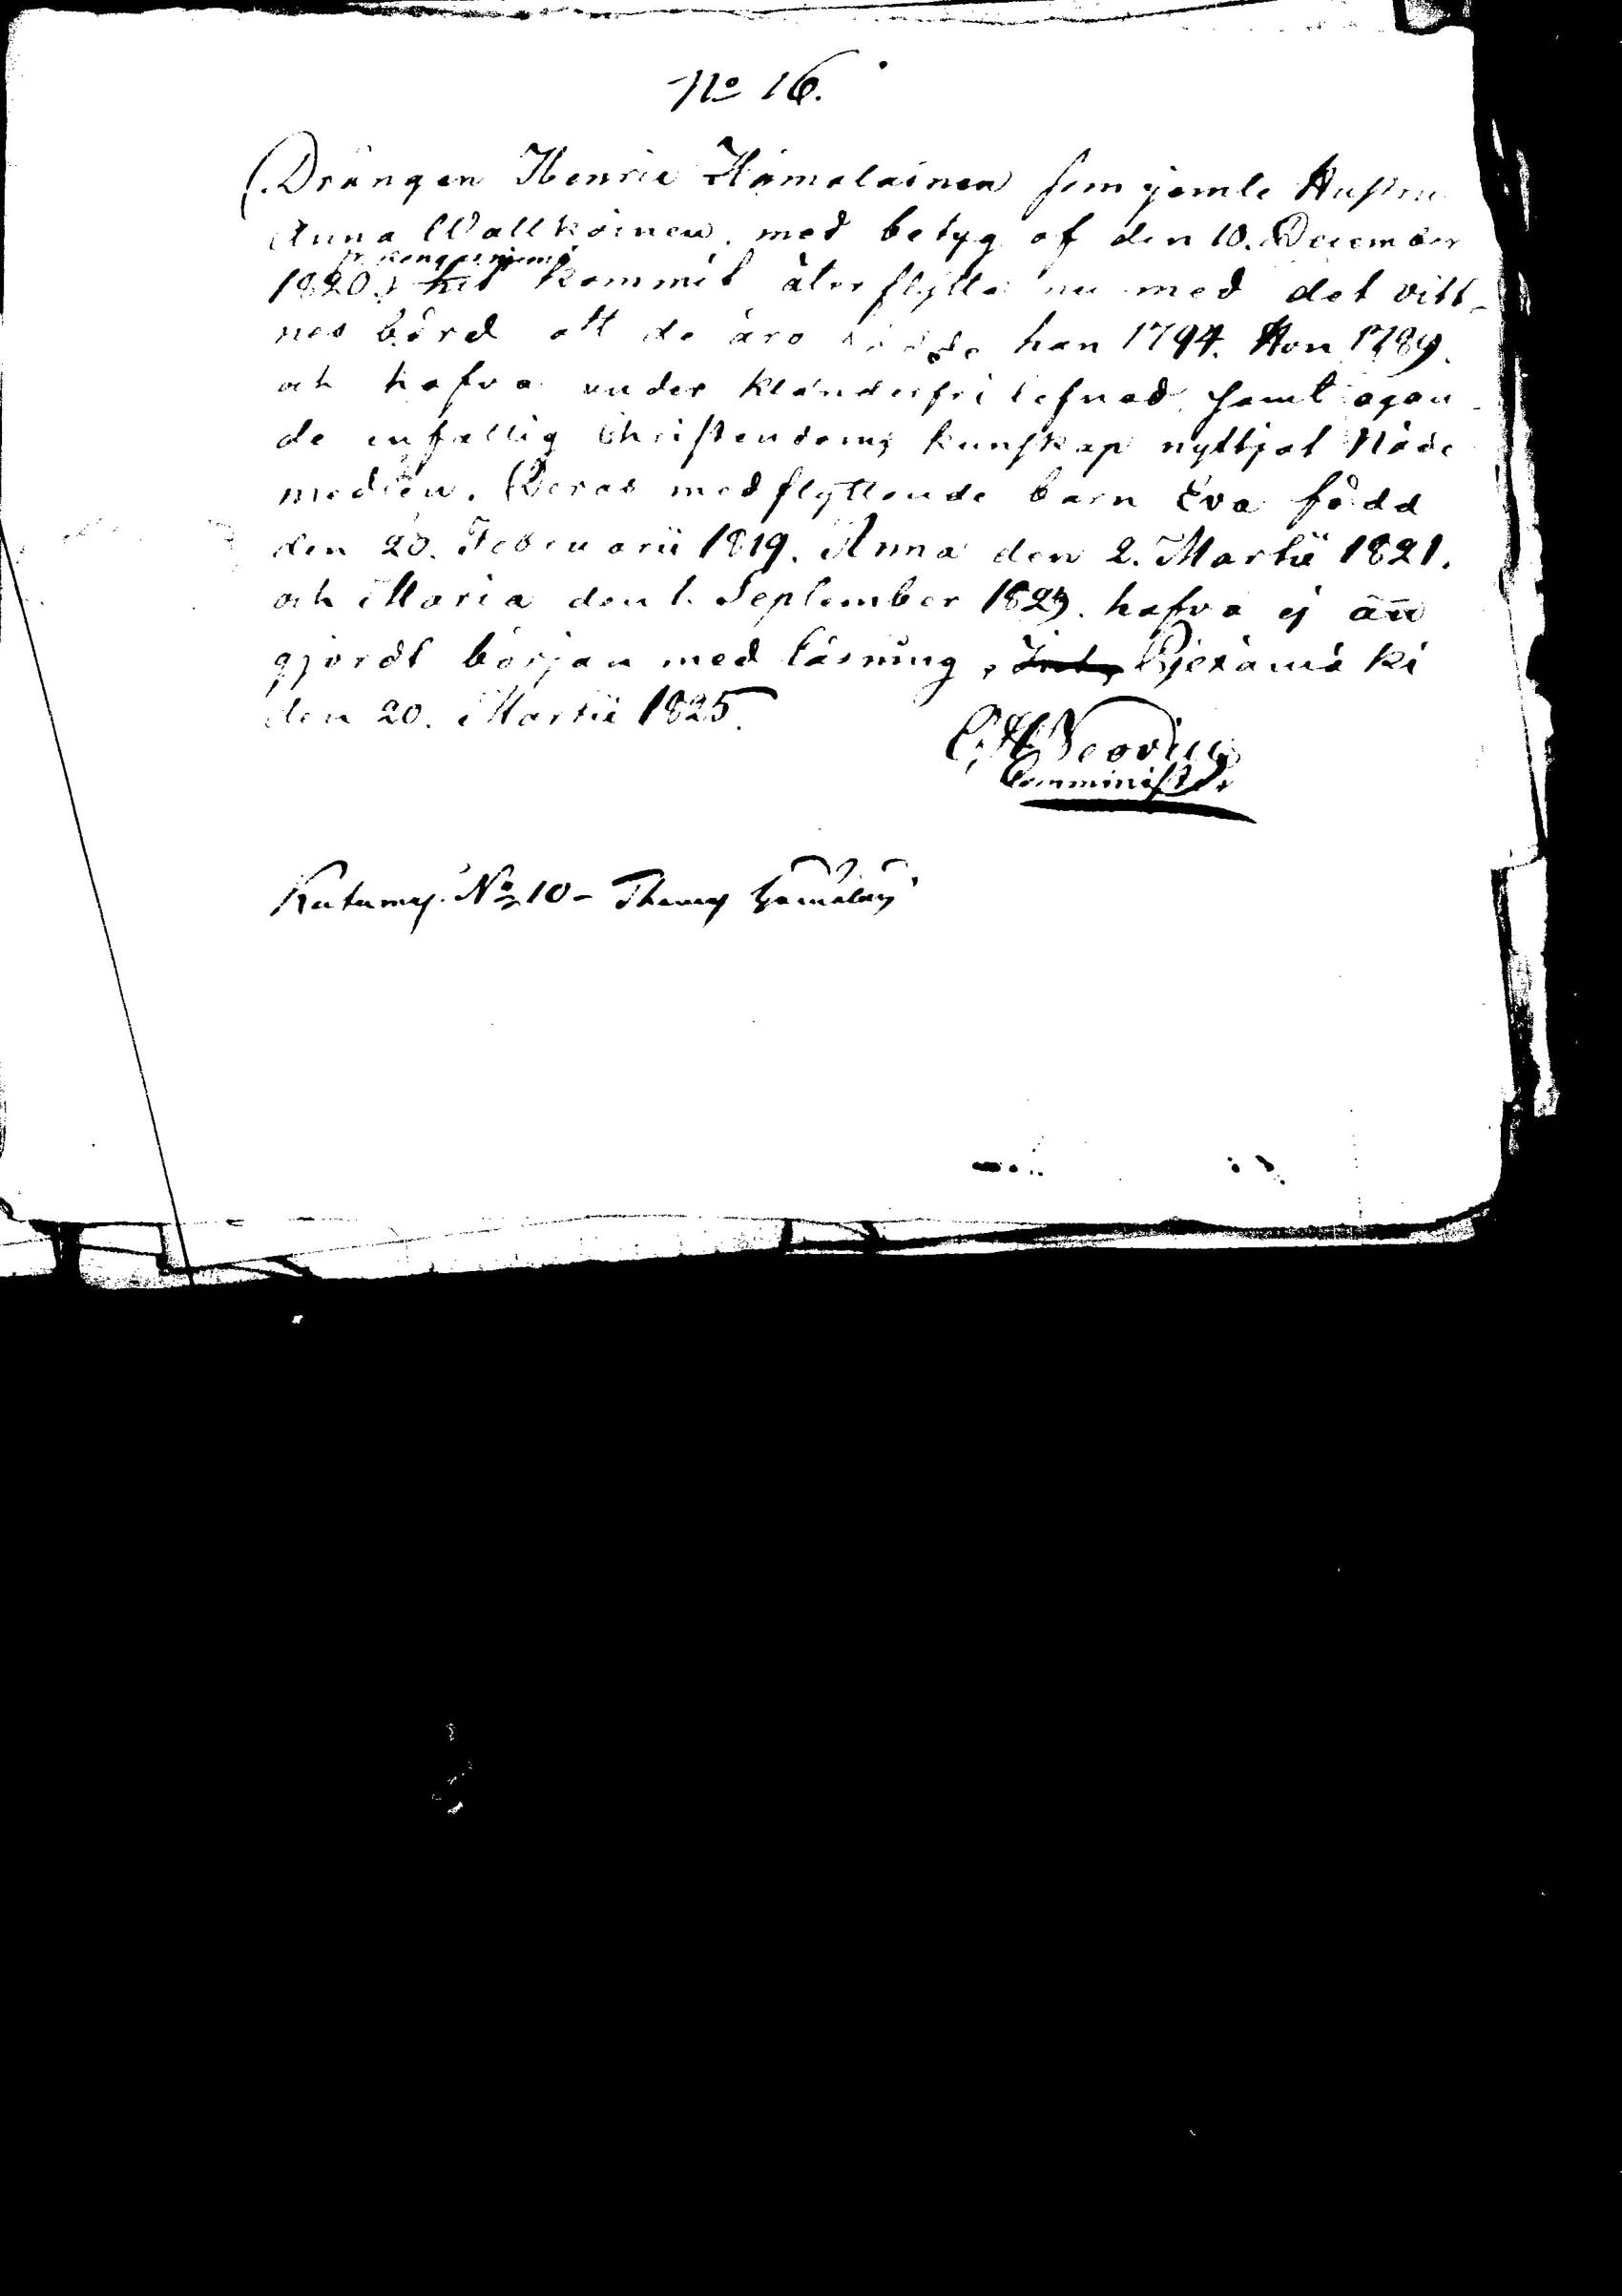 No 16.
Drängen Henric Hämäläinen som jemte Hustru
Anna Wallkoinen. med betyg af den 10. December
fr Kangasniemi
1820. hit kommit återflytta nu med det vitt-
nes börd att de äro födde han 1794. Hon 1789.
och hafva under klanderfri lefnad, samt ägan
de enfallig Christendoms kunskap nyttjat Nåde
medlen. Deras medflyttande barn Eva född
den 20. Februarii 1819. Anna den 2. Martii 1821.
och Maria den 1. September 1823. hafva ej än̄
gjordt början med läsning, Pjexämä ki
den 20. Martii 1825.
C. H. Neovius
Comminister
No 10 -